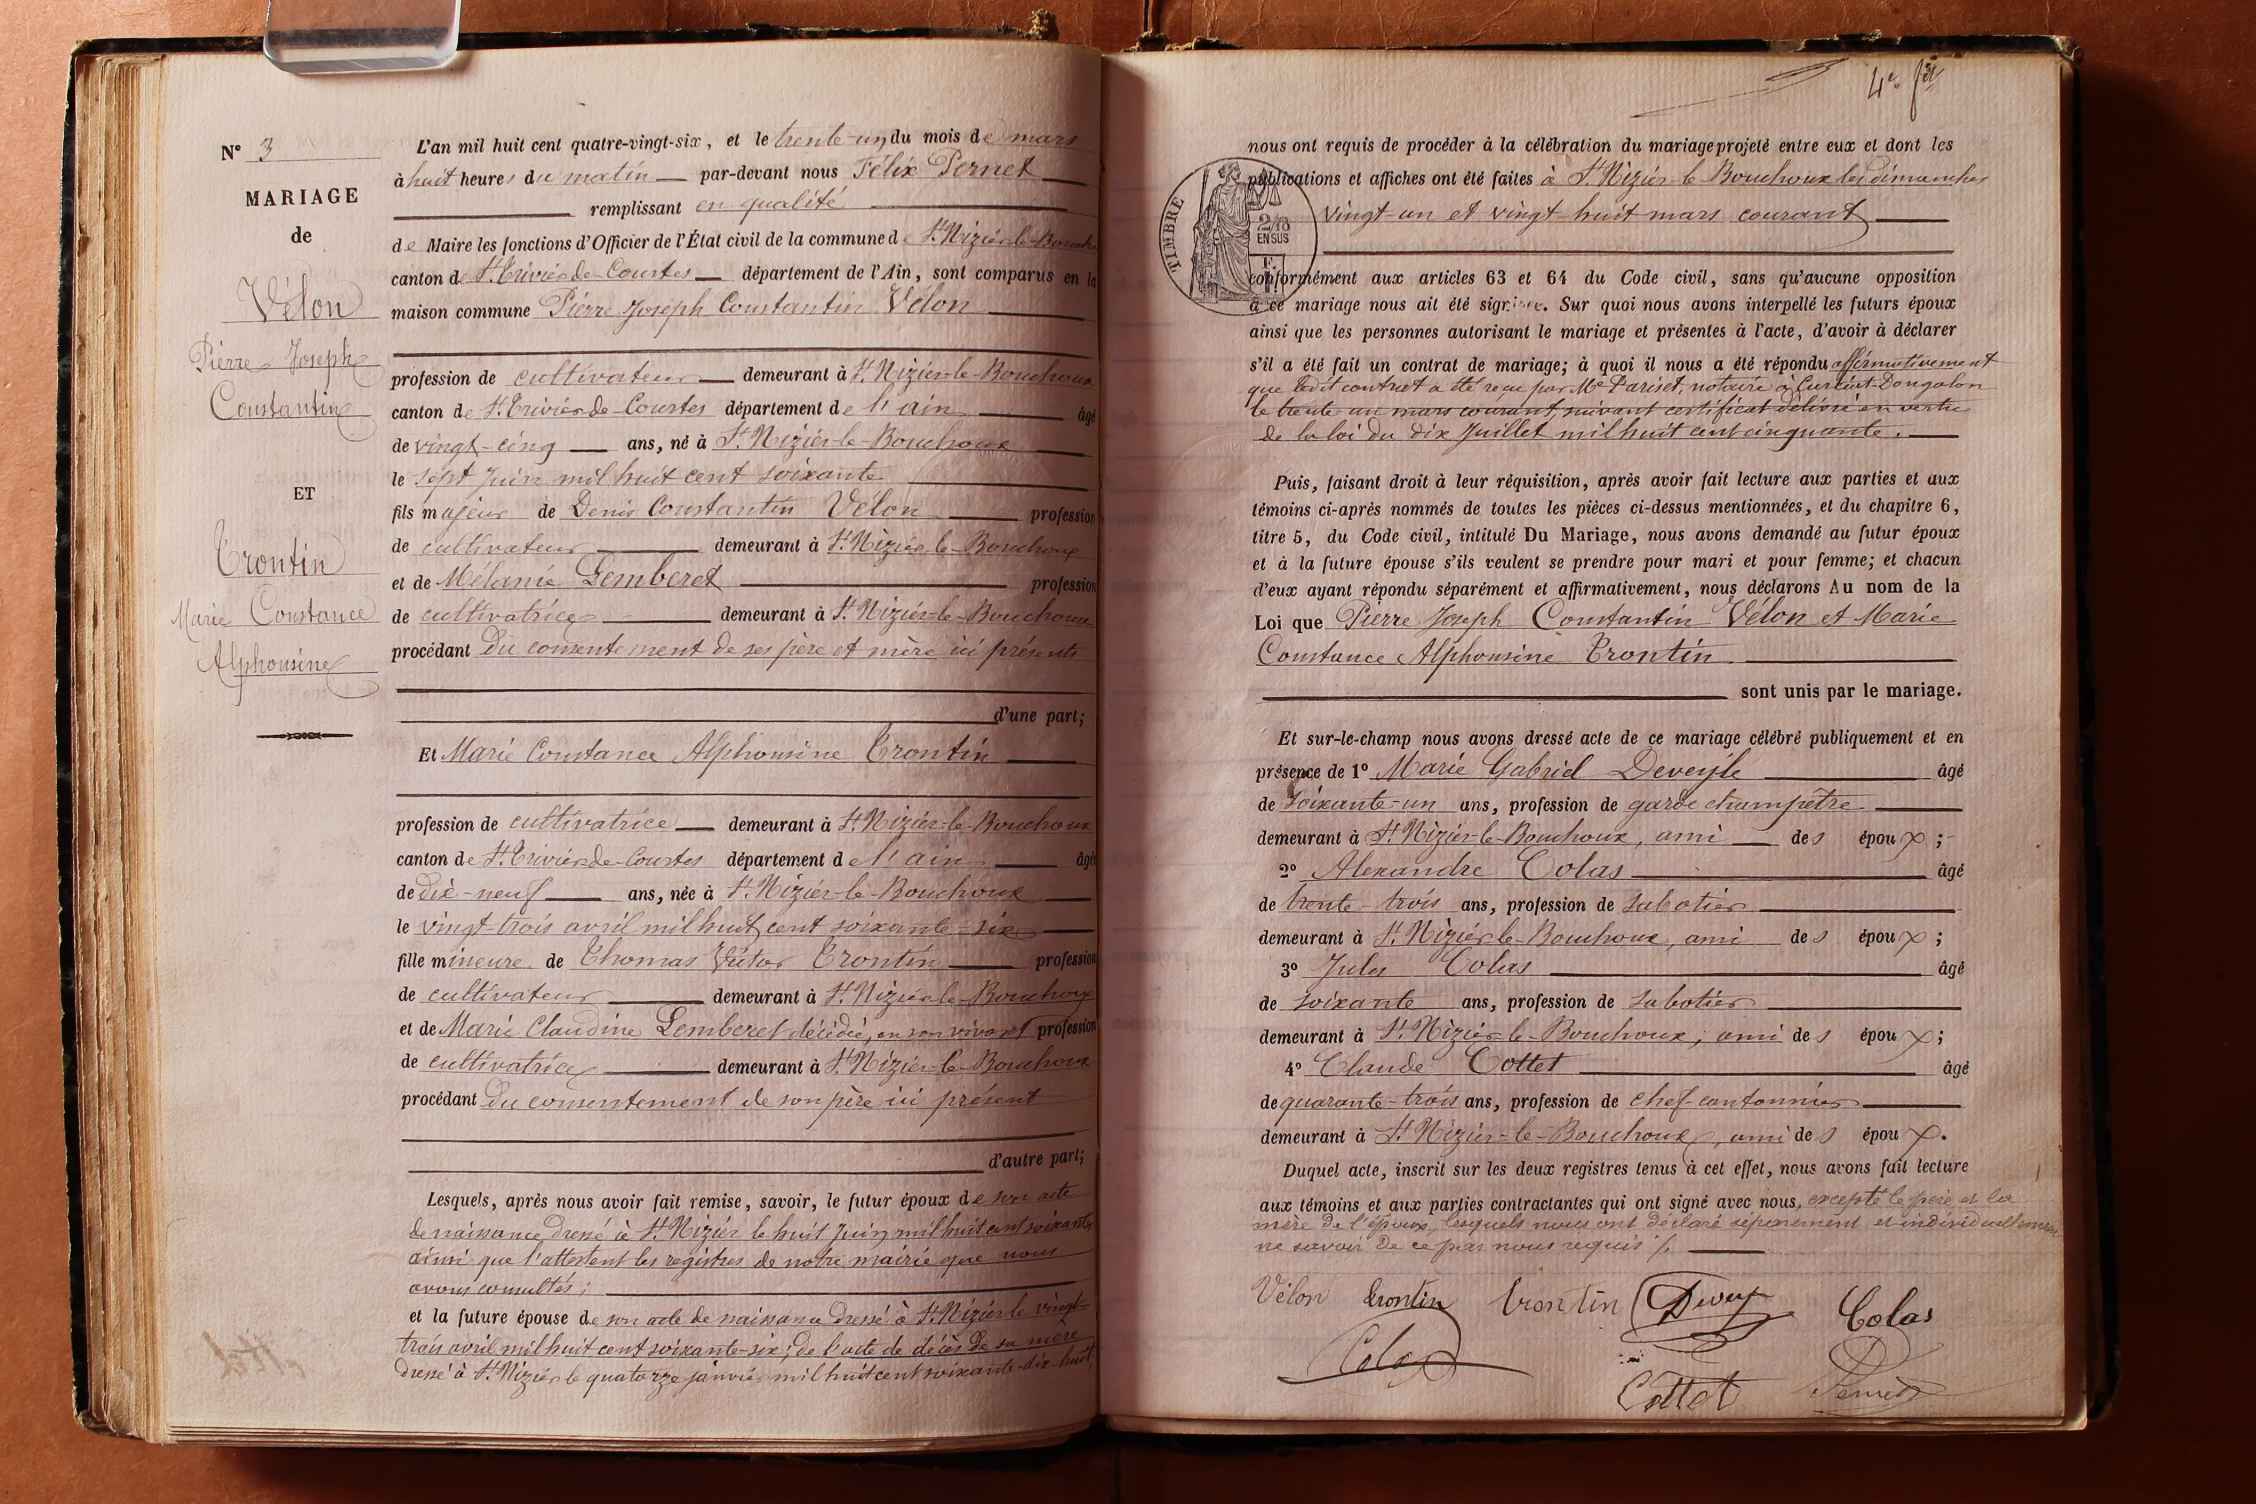 N° 3
MARIAGE
de
Vélon
Pierre Joseph
Constantin
ET
Trontin
Marie Constance
Alphonsine
L'an mil huit cent quatre-vingt-six, et le trente-un du mois de mars
à huit heures du matin par-devant nous Félix Pernet
remplissant en qualité
de Maire les fonctions d'Officier de l'État civil de la commune de St Nizier-le-Bouchoux
canton de St Trivier-de-Courtes département de l'Ain, sont comparus en la
maison commune Pierre Joseph Constantin Vélon
profession de cultivateur demeurant à St Nizier-le-Bouchoux
canton de St Trivier-de-Courtes département de l'ain âgé
de vingt-cinq ans, né à St Nizier-le-Bouchoux
le sept Juin mil huit cent soixante
fils majeur de Denis Constantin Vélon profession
de cultivateur demeurant à St Nizier-le-Bouchoux
et de Mélanie Gemberet profession
de cultivatrice demeurant à St Nizier-le-Bouchoux
procédant du consentement de ses père et mère ici présents
d'une part;
Et Marie Constance Alphonsine Trontin
profession de cultivatrice demeurant à St Nizier-le-Bouchoux
canton de St Trivier-de-Courtes département de l'ain âgée
de dix-neuf ans, née à St Nizier-le-Bouchoux
le vingt-trois avril mil huit cent soixante-six
fille mineure de Thomas Victor Trontin profession
de cultivateur demeurant à St Nizier-le-Bouchoux
et de Marie Claudine Gemberet décédée, en son vivant profession
de cultivatrice demeurant à St Nizier-le-Bouchoux
procédant du consentement de son père ici présent
d'autre part;
Lesquels, après nous avoir fait remise, savoir, le futur époux de son acte
de naissance dressé à St Nizier le huit Juin mil huit cent soixante
ainsi que l'attestent les registres de notre mairie que nous
avons consultés;
et la future épouse de son acte de naissance dressé à St Nizier le vingt-
trois avril mil huit cent soixante-six; de l'acte de décès de sa mère
dressé à St Nizier le quatorze janvier mil huit cent soixante-dix-huit
4e
nous ont requis de procéder à la célébration du mariage projeté entre eux et dont les
publications et affiches ont été faites à St Nizier-le-Bouchoux les dimanches
vingt-un et vingt-huit mars courant
TIMBRE
2/10
EN SUS
conformément aux articles 63 et 64 du Code civil, sans qu'aucune opposition
à ce mariage nous ait été signifiée. Sur quoi nous avons interpellé les futurs époux
ainsi que les personnes autorisant le mariage et présentes à l'acte, d'avoir à déclarer
s'il a été fait un contrat de mariage; à quoi il nous a été répondu affirmativement
que ledit contrat a été reçu par Me Pariset, notaire à Curciat-Dongalon
le trente-un mars courant, suivant certificat délivré en vertu
de la loi du dix Juillet mil huit cent cinquante.
Puis, faisant droit à leur réquisition, après avoir fait lecture aux parties et aux
témoins ci-après nommés de toutes les pièces ci-dessus mentionnées, et du chapitre 6,
titre 5, du Code civil, intitulé Du Mariage, nous avons demandé au futur époux
et à la future épouse s'ils veulent se prendre pour mari et pour femme; et chacun
d'eux ayant répondu séparément et affirmativement, nous déclarons Au nom de la
Loi que Pierre Joseph Constantin Vélon et Marie
Constance Alphonsine Trontin
sont unis par le mariage.
Et sur-le-champ nous avons dressé acte de ce mariage célébré publiquement et en
présence de 1° Marie Gabriel Deveyle âgé
de soixante-un ans, profession de garde champêtre
demeurant à St Nizier-le-Bouchoux, ami des époux;
2° Alexandre Colas âgé
de trente-trois ans, profession de sabotier
demeurant à St Nizier-le-Bouchoux, ami des époux;
3° Jules Colas âgé
de soixante ans, profession de sabotier
demeurant à St Nizier-le-Bouchoux, ami des époux;
4° Claude Cottet âgé
de quarante-trois ans, profession de chef-cantonnier
demeurant à St Nizier-le-Bouchoux, ami des époux.
Duquel acte, inscrit sur les deux registres tenus à cet effet, nous avons fait lecture
aux témoins et aux parties contractantes qui ont signé avec nous, excepté le père et la
mère de l'époux, lesquels nous ont déclaré séparement et individuellement
ne savoir de ce par nous requis
Vélon Trontin trontin Colas
Colas
Cottet Pernet